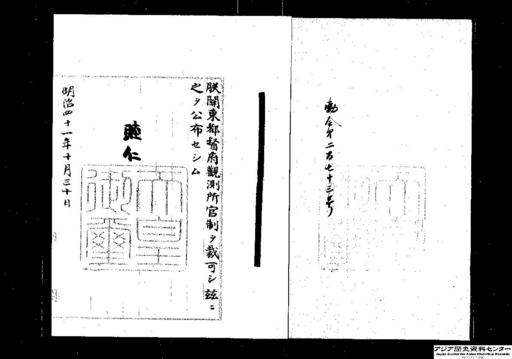 勅令第二百七十三号
朕關東都督府觀測所官制ヲ裁可シ茲ニ
之ヲ公布セシム
睦仁
天皇
御璽
明治四十一年十月三十日
アジア歴史資料センター
Japan Center for Asian Historical Records